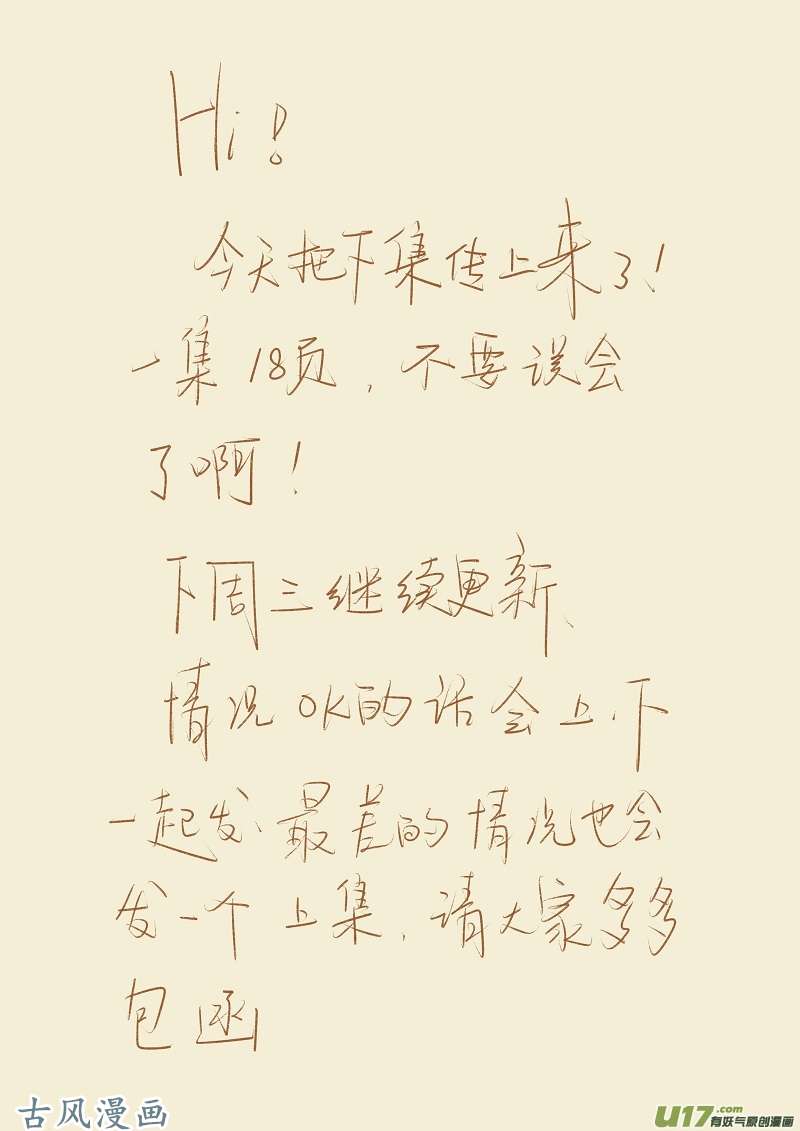 Hi!
今天把下集传上来了!
一集18页,不要误会
了啊!
下周三继续更新、
情况OK的话会上、下
一起发、最差的情况也会
发一个上集,请大家多多
包函
古风漫画
U17.com
有妖气原创漫画